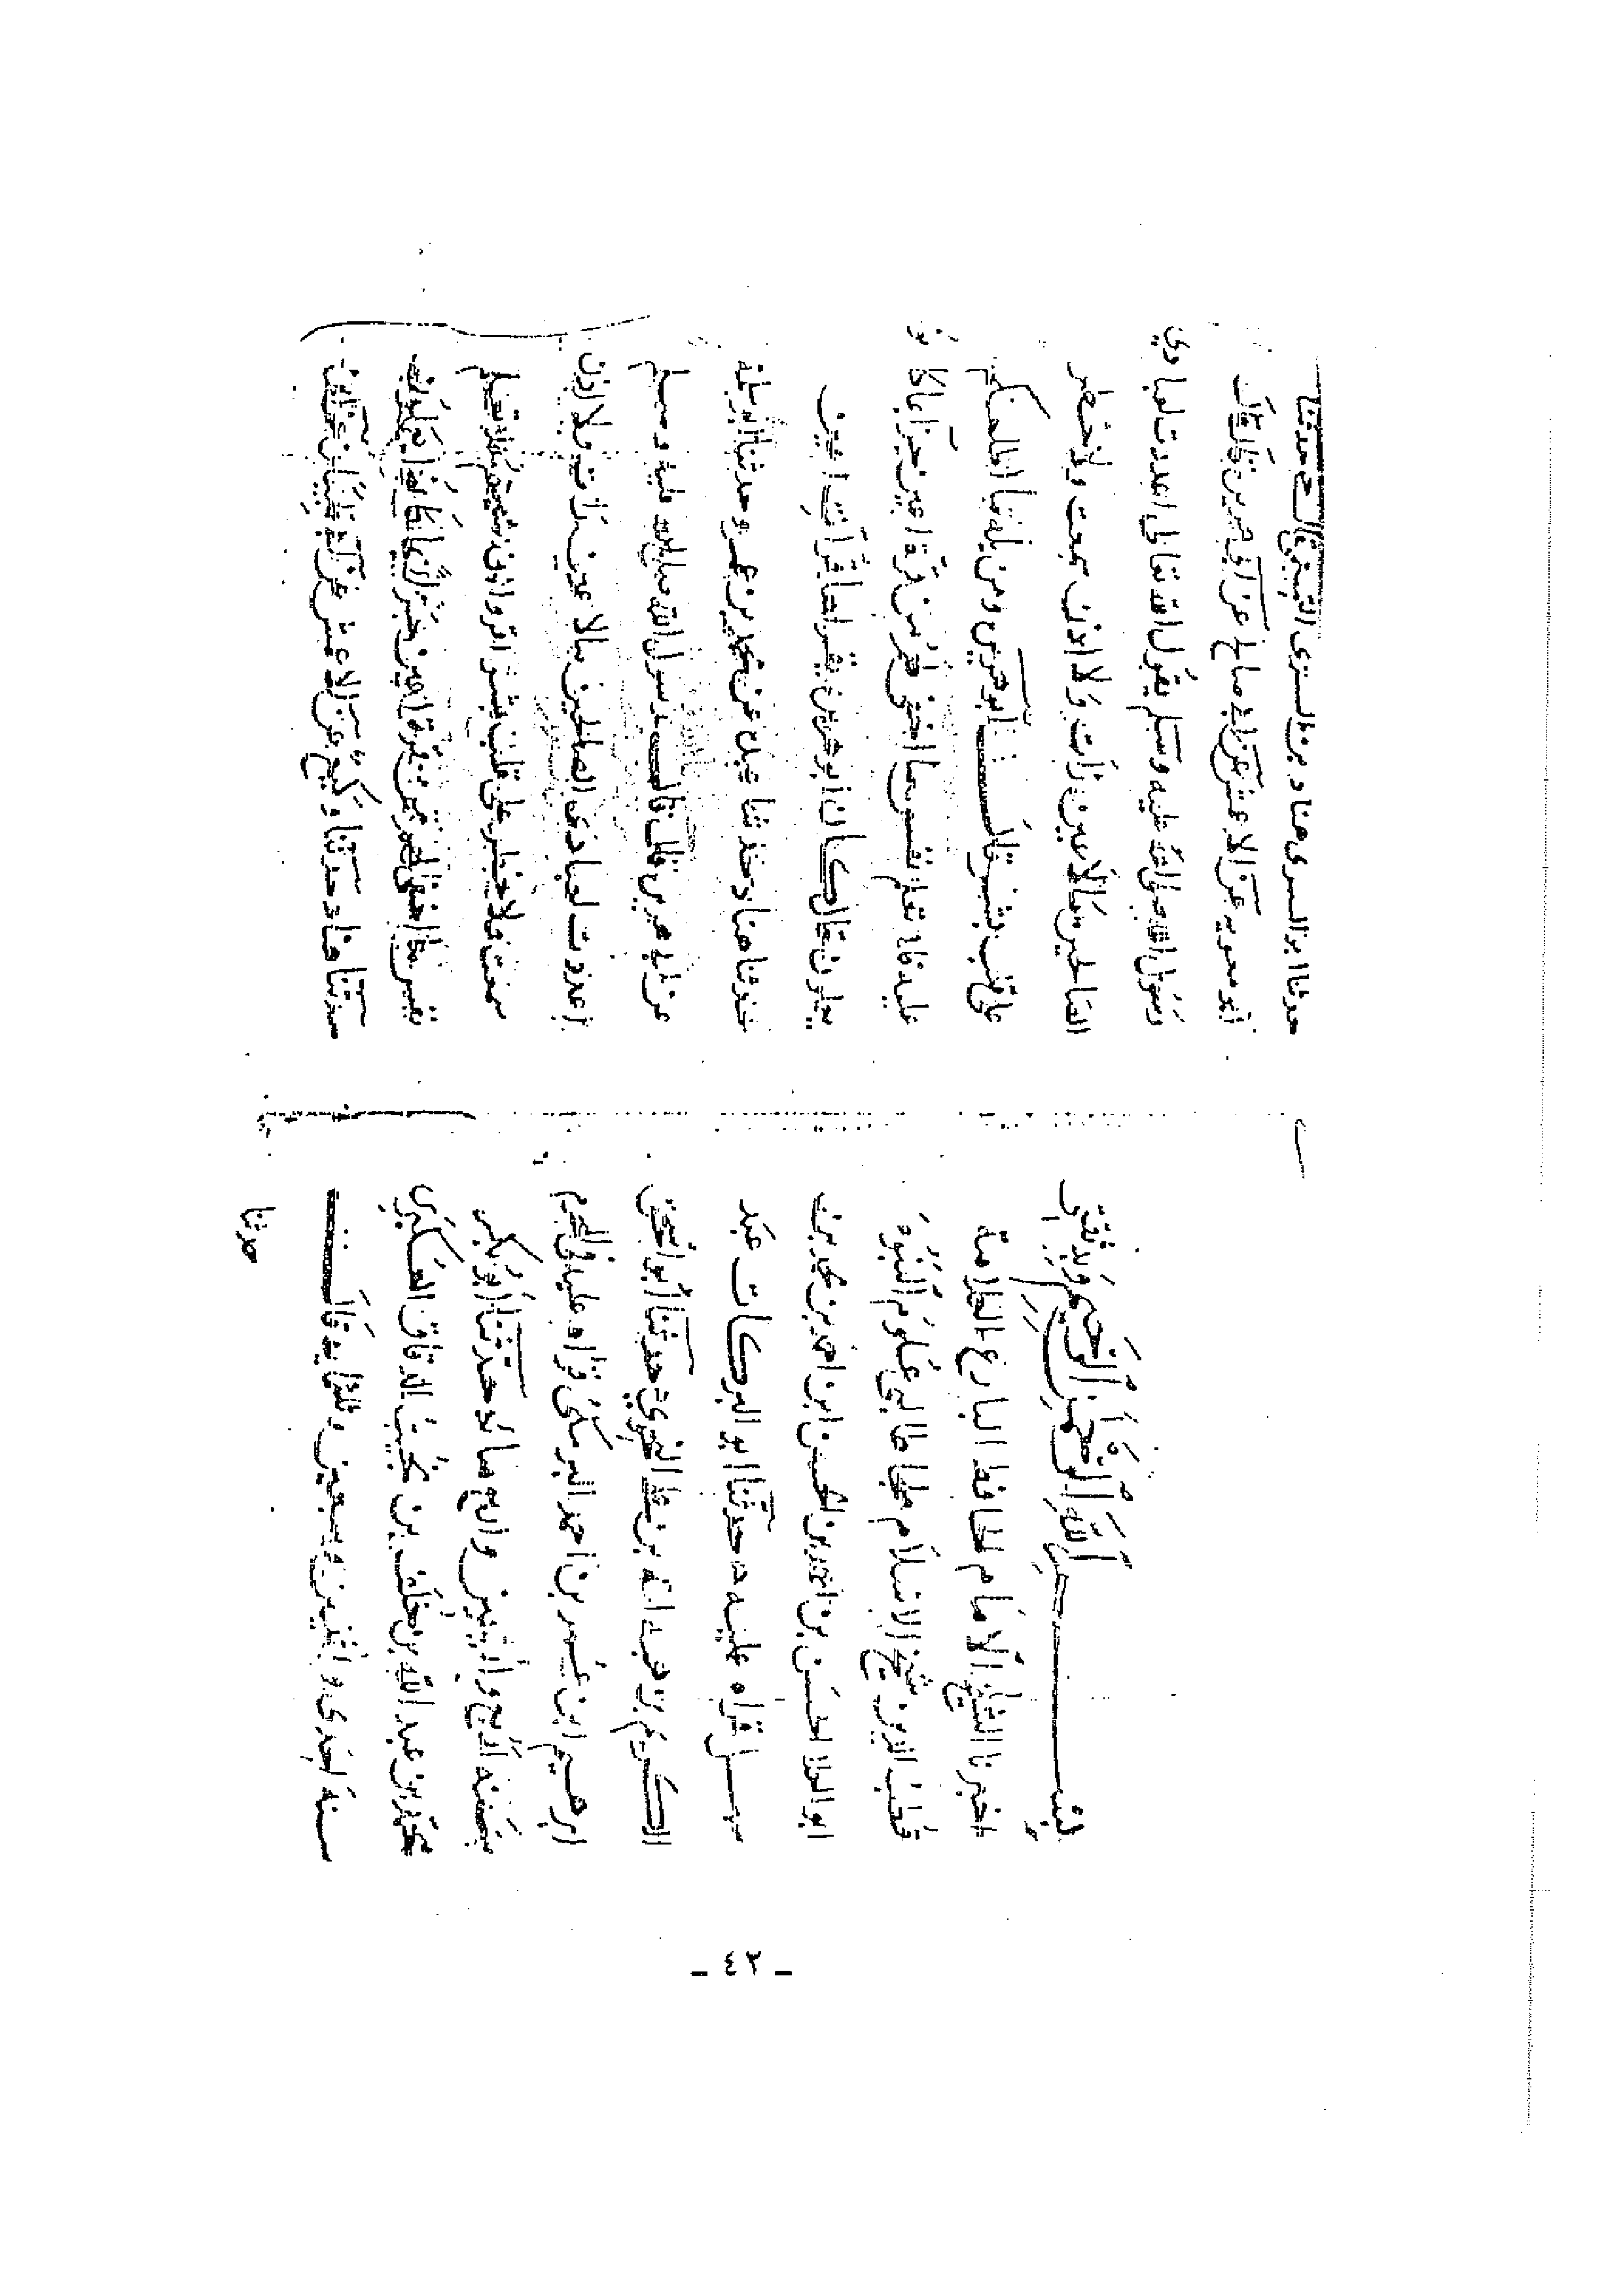 بسم الله الرحمن الرحيم وبه ثقتي
اخبرنا الشيخ الامام الحافظ البارع العلامة
قطب الدين شيخ الاسلام ملجا طالبي علوم النبوة
ابو العلا الحسن بن احمد بن الحسن ابن احمد بن محمد بن
سهل قراه عليه حدثنا ابو البركات عبد
الكريم بن هبه الله بن علي النحوي حدثنا ابو اسحق
ابرهيم ابن عمر بن احمد البرمكي قراه عليه في المحرم
سنه اربع واربعين واربع مائه حدثنا ابو بكر
محمد بن عبد الله بن خلف بن بخيت الدقاق العكبري
سنه احدى وسبعين وثلثمايه قال
حدثنا
حدثنا ابو السرى هناد بن السرى التميمي حدثنا
ابو معويه عن الاعمش عن ابي صالح عن ابي هريرة قال قال
رسول الله صلى الله عليه وسلم يقول الله تعالى اعددت لعبادي
الصالحين ما لا عين رات ولا اذن سمعت ولا خطر
على قلب بشر قال ابو هريرة ومن بله ما اطلعكم
عليه فلا تعلم نفس ما اخفي لهم من قرة اعين جزا بما كانوا
يعملون قال كان ابو هريرة يقراها قرات اعين
حدثنا هناد حدثنا عبدة عن محمد بن عمرو حدثنا ابو سلمة
عن ابي هريرة قال قال رسول الله صلى الله عليه وسلم
اعددت لعبادي الصالحين ما لا عين رات ولا اذن
سمعت ولا خطر على قلب بشر اقروا ان شيتم فلا تعلم
نفس ما اخفي لهم من قرة اعين جزا بما كانوا يعملون
حدثنا هناد حدثنا وكيع عن الاعمش عن ابي ظبيان عن ابن